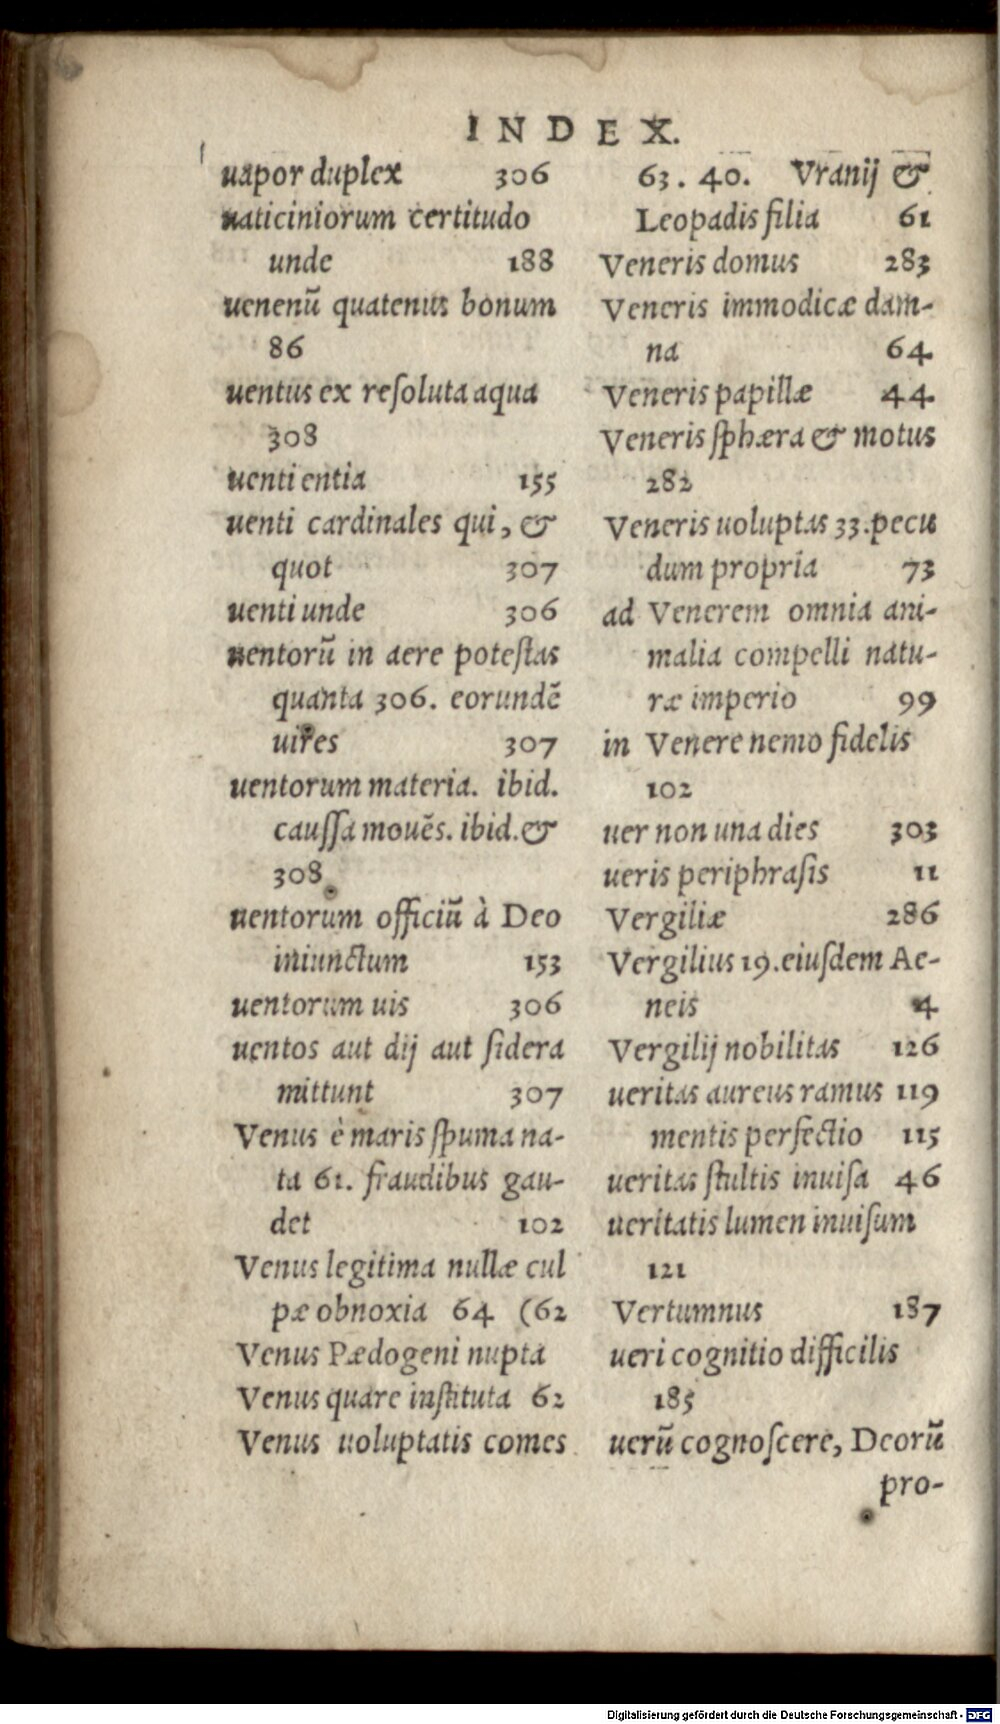 INDEX.
uapor duplex 306
uaticiniorum certitudo
unde 188
uenenũ quatenus bonum
86
uentus ex reſoluta aqua
308
uenti entia 155
uenti cardinales qui, &
quot 307
uenti unde 306
uentorũ in aere poteſtas
quanta 306. eorundẽ
uires 307
uentorum materia. ibid.
cauſſa mouẽs. ibid. &
308
uentorum officiũ à Deo
iniunctum 153
uentorum uis 306
uentos aut dij aut ſidera
mittunt 307
Venus è maris ſpuma na-
ta 61. fraudibus gau-
det 102
Venus legitima nullæ cul
pæ obnoxia 64 (62
Venus Pædogeni nupta
Venus quare inſtituta 62
Venus uoluptatis comes
63. 40. Vranij &
Leopadis filia 61
Veneris domus 283
Veneris immodicæ dam-
na 64
Veneris papillæ 44
Veneris ſphæra & motus
282
Veneris uoluptas 33. pecu
dum propria 73
ad Venerem omnia ani-
malia compelli natu-
ræ imperio 99
in Venere nemo fidelis
102
uer non una dies 303
ueris periphraſis 11
Vergiliæ 286
Vergilius 19. eiuſdem Ae-
neis 4
Vergilij nobilitas 126
ueritas aureus ramus 119
mentis perfectio 115
ueritas ſtultis inuiſa 46
ueritatis lumen inuiſum
121
Vertumnus 187
ueri cognitio difficilis
185
uerũ cognoſcere, Deorũ
pro-
Digitalisierung gefördert durch die Deutsche Forschungsgemeinschaft - DFG